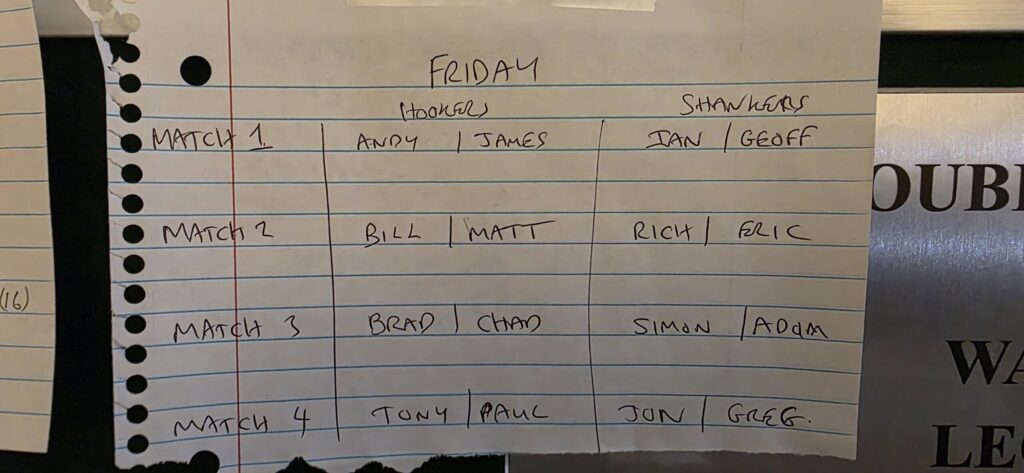 FRIDAY
HOOKERS SHANKERS
MATCH 1 ANDY | JAMES IAN | GEOFF
MATCH 2 BILL | MATT RICH | ERIC
(16)
MATCH 3 BRAD | CHAD SIMON | ADAM
MATCH 4 TONY | PAUL JON | GREG.
OUB
WA
LE